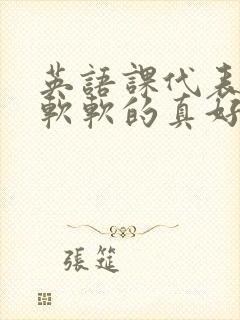 英語課代表
軟軟的真好
張筵